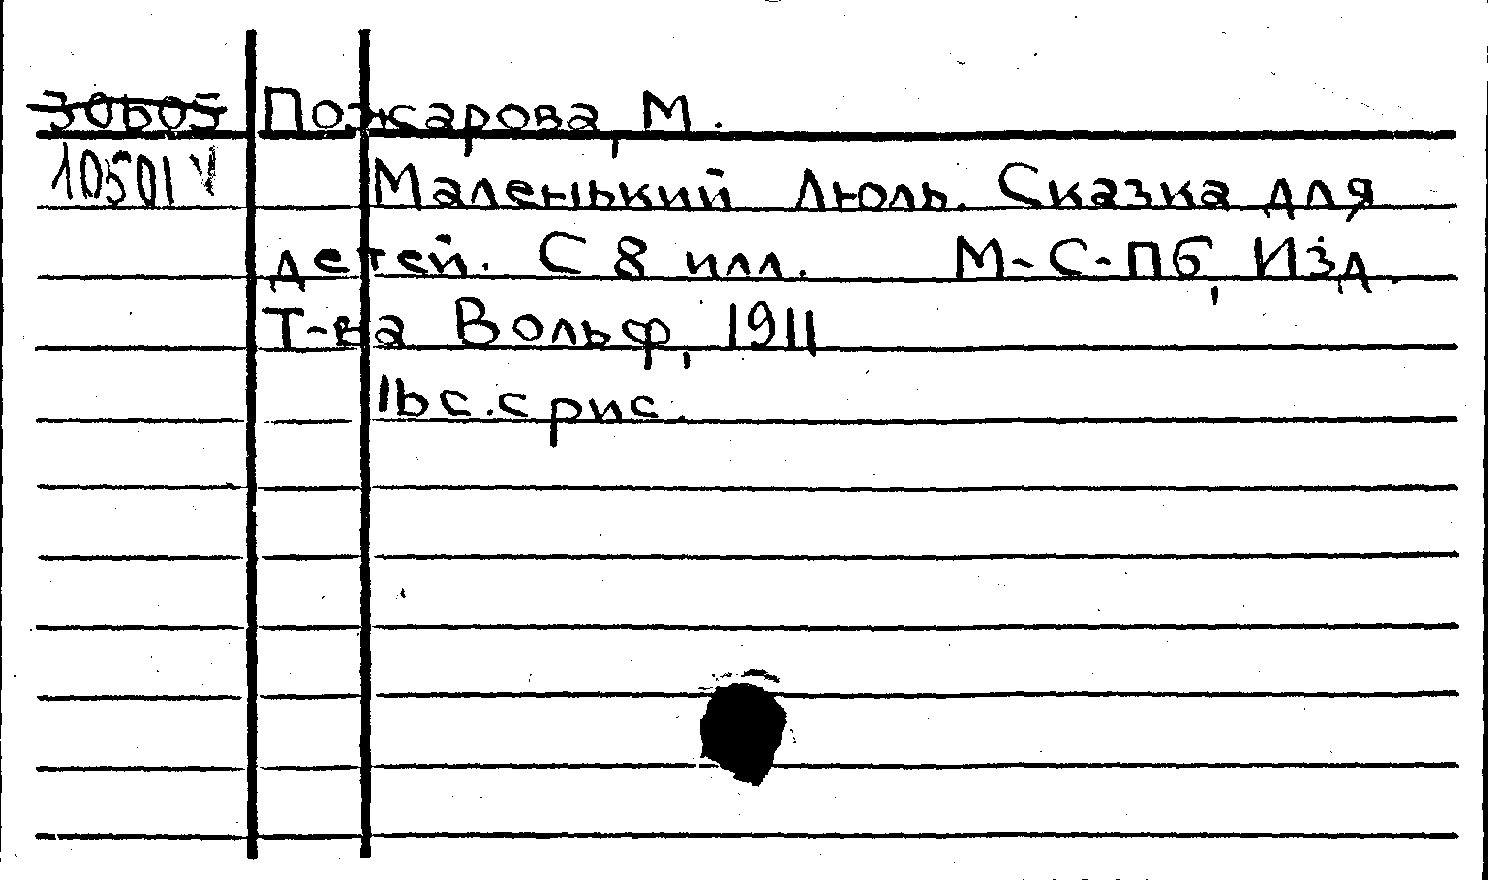 30605 Пожарова, М.
10501 V Маленький Люль. Сказка для
детей. С 8 илл. М-С-Пб, Изд.
Т-ва Вольф, 1911
16 с. с рис.